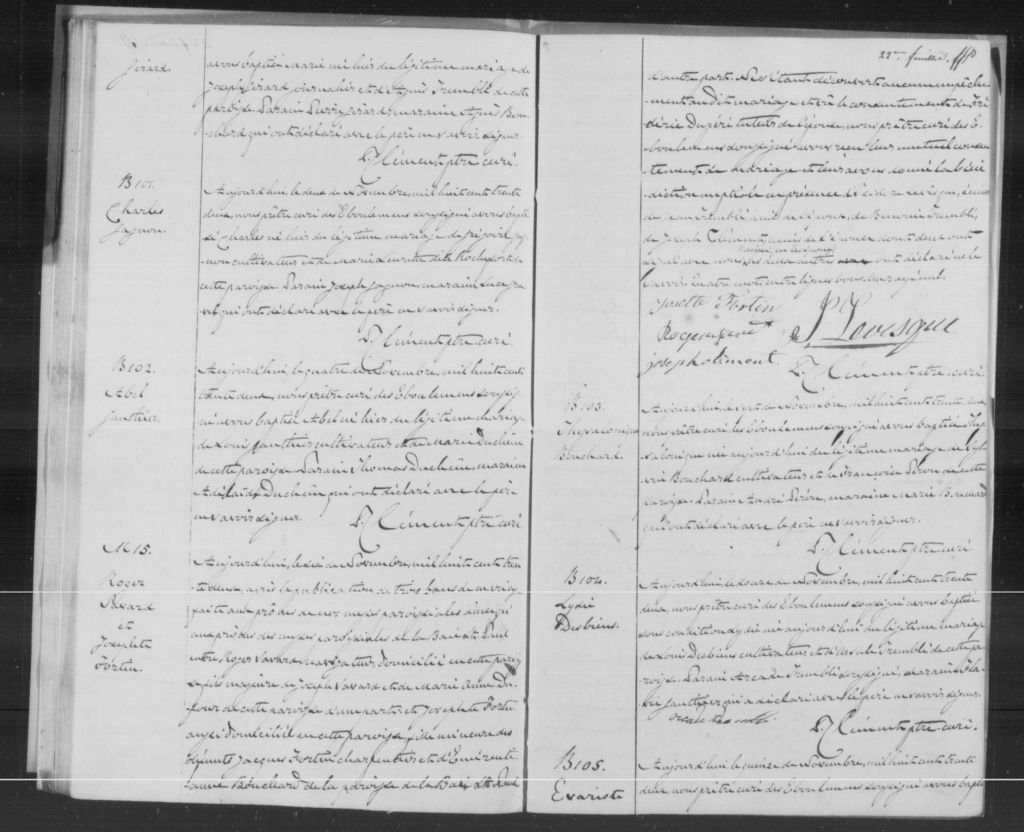 Girard.
avons baptisé Marie née hier du légitime mariage de
Joseph Girard journalier et d'Agnès Tremblé de cette
paroisse. Parain Pierre Girard, maraine Agnès Bou-
chard qui ont déclaré avec le père ne savoir signer.
Clément ptre curé.
B 101.
Charles
Gagnon.
Aujourd'hui, le deux de Novembre, mil huit cent trente
deux, nous prêtre curé des Eboulemens soussigné avons bapti-
sé Charles né hier du légitime mariage de Grégoire Ga-
gnon cultivateur et de Marie Laurette dite Rochefort de
cette paroisse. Parain Joseph Gagnon, maraine
qui ont déclaré avec le père ne savoir signer.
Clément ptre curé.
B 102.
Abel
Gauthier.
Aujourd'hui, le quatre de Novembre, mil huit cent
trente deux, nous prêtre curé des Eboulemens soussi-
gné avons baptisé Abel né hier du légitime mariage
de Louis Gauthier cultivateur et de Marie Duchêne
de cette paroisse. Parain Thomas Duchêne, maraine
Adélaïde Duchêne qui ont déclaré avec le père
ne savoir signer.
Clément ptre curé
M 15.
Roger
Savard
et
Josephte
Fortin.
Aujourd'hui, le dix de Novembre, mil huit cent tren-
te deux, après la publication de trois bans de mariage
faite aux prônes de nos messes paroissiales ainsi qu'
aux prônes des messes paroissiales de la Baie St Paul
entre Roger Savard navigateur, domicilié en cette parois-
se fils majeur de Joseph Savard et de Marie Anne Du-
four de cette paroisse d'une part; et Josephte Fortin
aussi domiciliée en cette paroisse, fille mineure des
défunts Jacques Fortin charpentier et d'Emérente
Anne Bouchard de la paroisse de la Baie St Paul
22me feuillet.
d'autre part. Ne s'étant découvert aucun empêche-
ment au dit mariage et vû le consentement de Fré-
déric Dupéré tuteur de l'épouse, nous prêtre curé des E-
boulemens soussigné avons reçu leur mutuel consen-
tement de mariage et leur avons donné la béné-
diction nuptiale en présence
de Jean Tremblé, amis de l'époux; de Benonie Tremblé,
de Joseph Clément, amis de l'épouse dont deux ont
signé avec nous
ont déclaré ne le
savoir. Quatre mots entre lignes bons.
Josette Fortin
Roger Savard
P Levesque
Joseph Clément
Clément ptre curé.
B 103.
Thessalonique
Bouchard.
Aujourd'hui, le sept de Novembre, mil huit cent trente deux
nous prêtre curé des Eboulemens soussigné avons baptisé Thes-
salonique née aujourd'hui du légitime mariage de
Bouchard cultivateur et de Françoise Perron de cette
paroisse. Parain André Perron, maraine Marie Bouchard
qui ont déclaré avec le père ne savoir signer.
Clément ptre curé
B 104.
Lydie
Desbiens.
Aujourd'hui, le douze de Novembre, mil huit cent trente
deux, nous prêtre curé des Eboulemens soussigné avons baptisé
sous condition Lydie née aujourd'hui du légitime mariage
de Louis Desbiens cultivateur et de Tremblé de cette pa-
roisse. Parain Tremblé soussigné, maraine
Gauthier qui a déclaré avec le père ne savoir signer.
Clément ptre curé.
B 105.
Evariste
Aujourd'hui, le quinze de Novembre, mil huit cent trente
deux, nous prêtre curé des Eboulemens soussigné avons bapti-